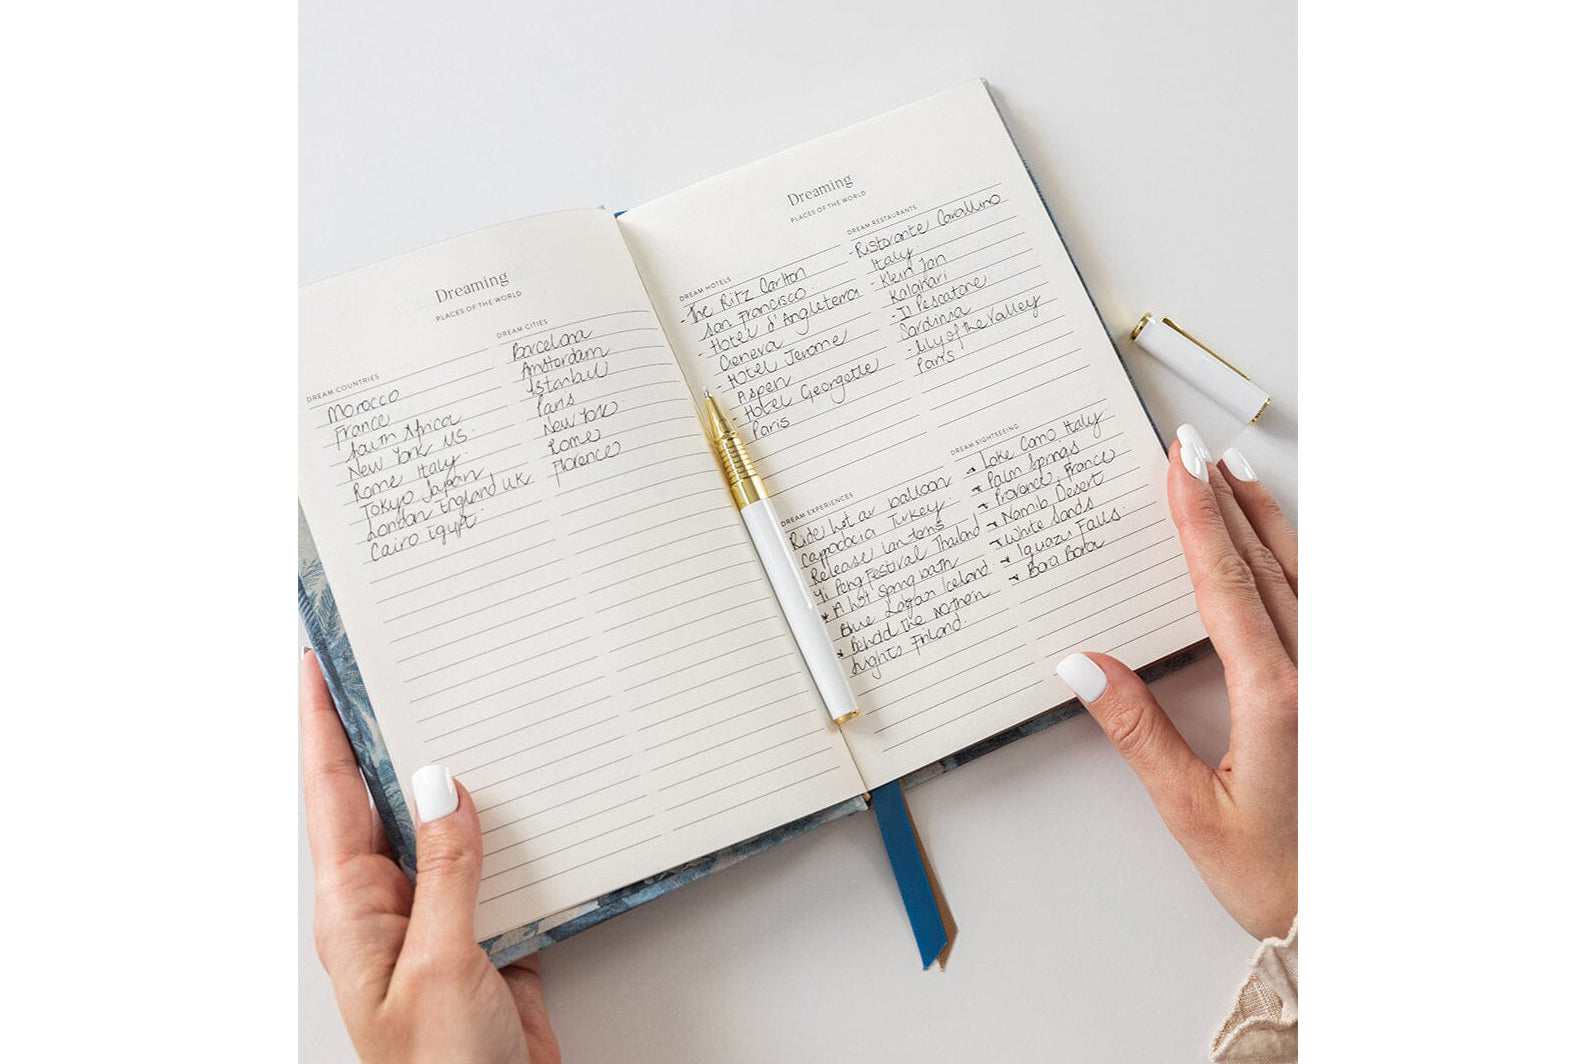 Dreaming
PLACES OF THE WORLD
DREAM COUNTRIES
Morocco
France
South Africa
New York US.
Rome Italy
Tokyo Japan
London England UK
Cairo Egypt
DREAM CITIES
Barcelona
Amsterdam
Istanbul
Paris
New York
Rome
Florence
Dreaming
PLACES OF THE WORLD
DREAM HOTELS
- The Ritz Carlton
San Francisco
- Hotel d'Angleterra
Geneva
- Hotel Jerome
Aspen
- Hotel Georgette
Paris
DREAM RESTAURANTS
- Ristorante Cavallino
Italy
- Klein Jan
Kalahari
- Il Pescatore
Sardinia
- Lily of the Valley
Paris
DREAM EXPERIENCES
Ride hot air balloon
Cappodocia Turkey
Release lanterns
Yi Peng Festival Thailand
* A hot spring bath
Blue Lagan Iceland
* Behold the Northern
Lights Finland.
DREAM SIGHTSEEING
Lake Como Italy
Palm Springs
Provence, France
Namib Desert
White Sands
Iguazu Falls
Bora Bora